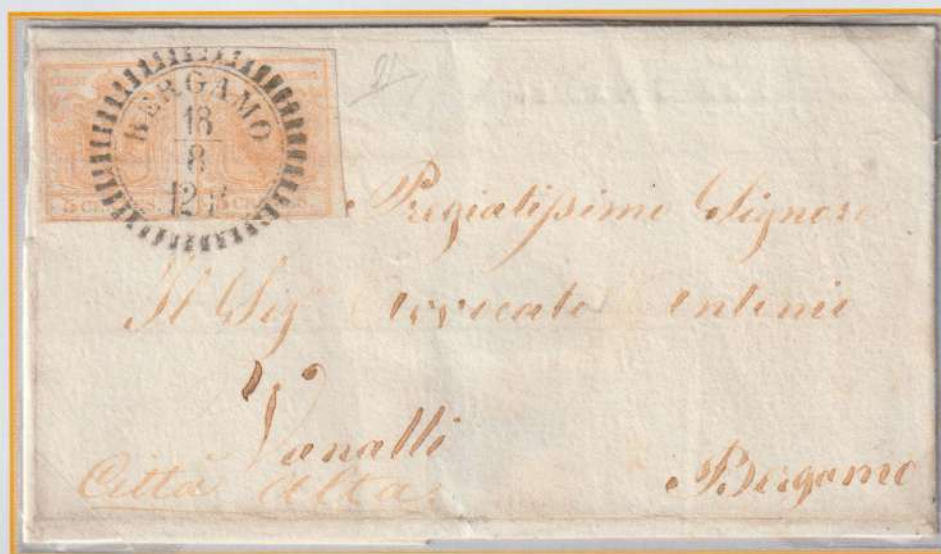 BERGAMO
18
8
12
5 CENTES. 5 CENTES.
Pregiatissimo Signore
Il Sig Avvocato Antonio
Vanalli
Città Alta
Bergamo